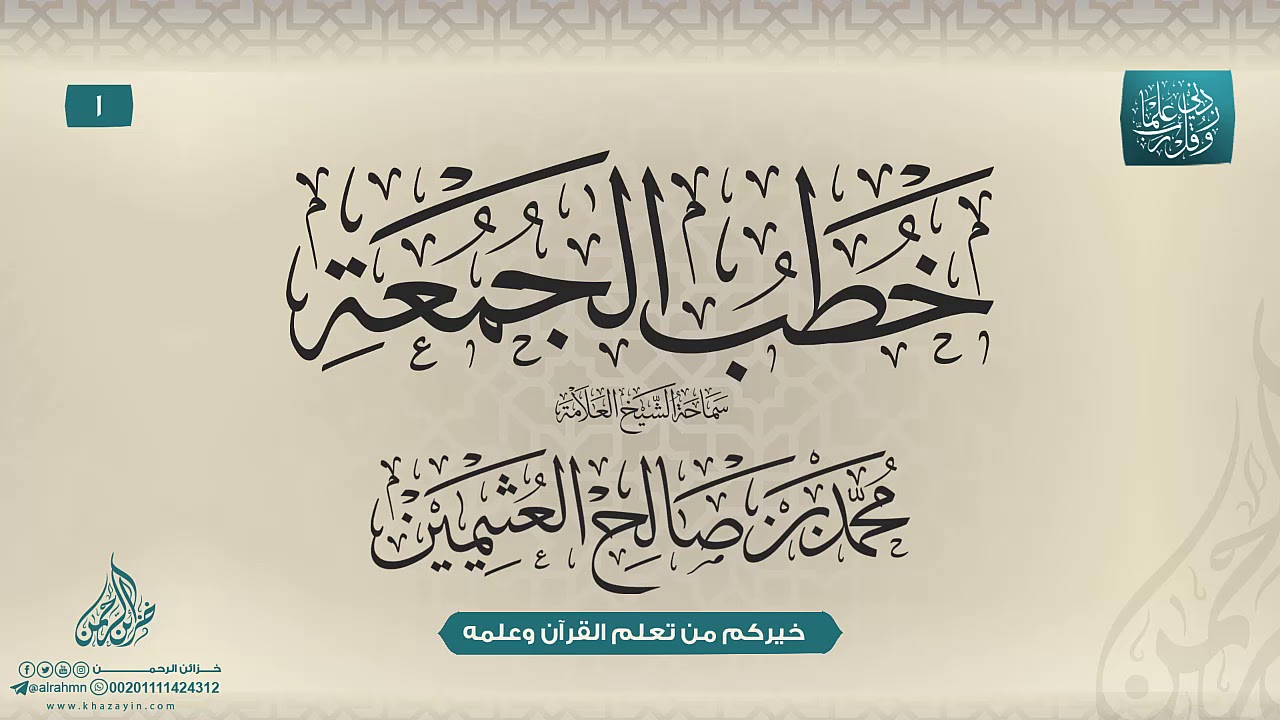 ١
وَقُل رَّبِّ زِدْنِي عِلْمًا
خُطَبُ الْجُمُعَةِ
سَمَاحَةُ الشَّيْخِ العَلَّامَةْ
مُحَمَّد بْنْ صَالِحْ العُثَيْمِيْنْ
خيركم من تعلم القرآن وعلمه
خزائن الرحمن
خزائن الرحمن
@alrahmn 00201111424312
www.khazayin.com